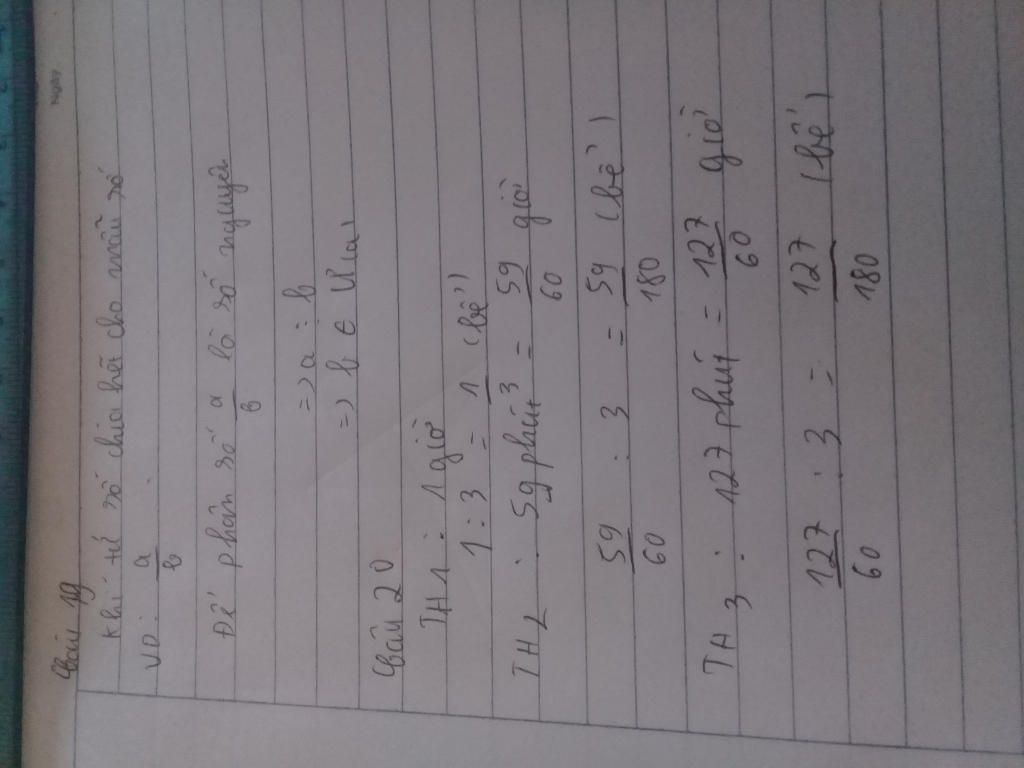 Ngày
Câu 19
Khi tử số chia hết cho mẫu số
VD: a/b
Để phân số a/b là số nguyên
=> a ⋮ b
=> b ∈ Ư(a)
Câu 20
TH1 : 1 giờ
1 : 3 = 1/3 (bể)
TH2 : 59 phút = 59/60 giờ
59/60 : 3 = 59/180 (bể)
TH3 : 127 phút = 127/60 giờ
127/60 : 3 = 127/180 (bể)